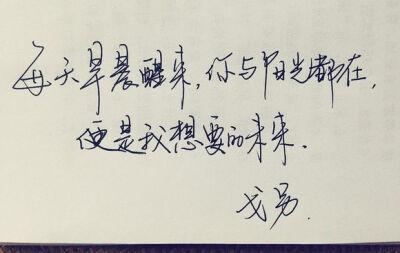 每天早晨醒来,你与阳光都在,
便是我想要的未来.
戈男.